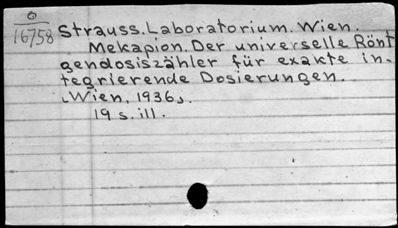 0
16758
Strauss. Laboratorium. Wien.
Mekapion. Der universelle Rönt
gendosiszähler für exakte in-
tegrierende Dosierungen.
[Wien, 1936].
19 s. ill.